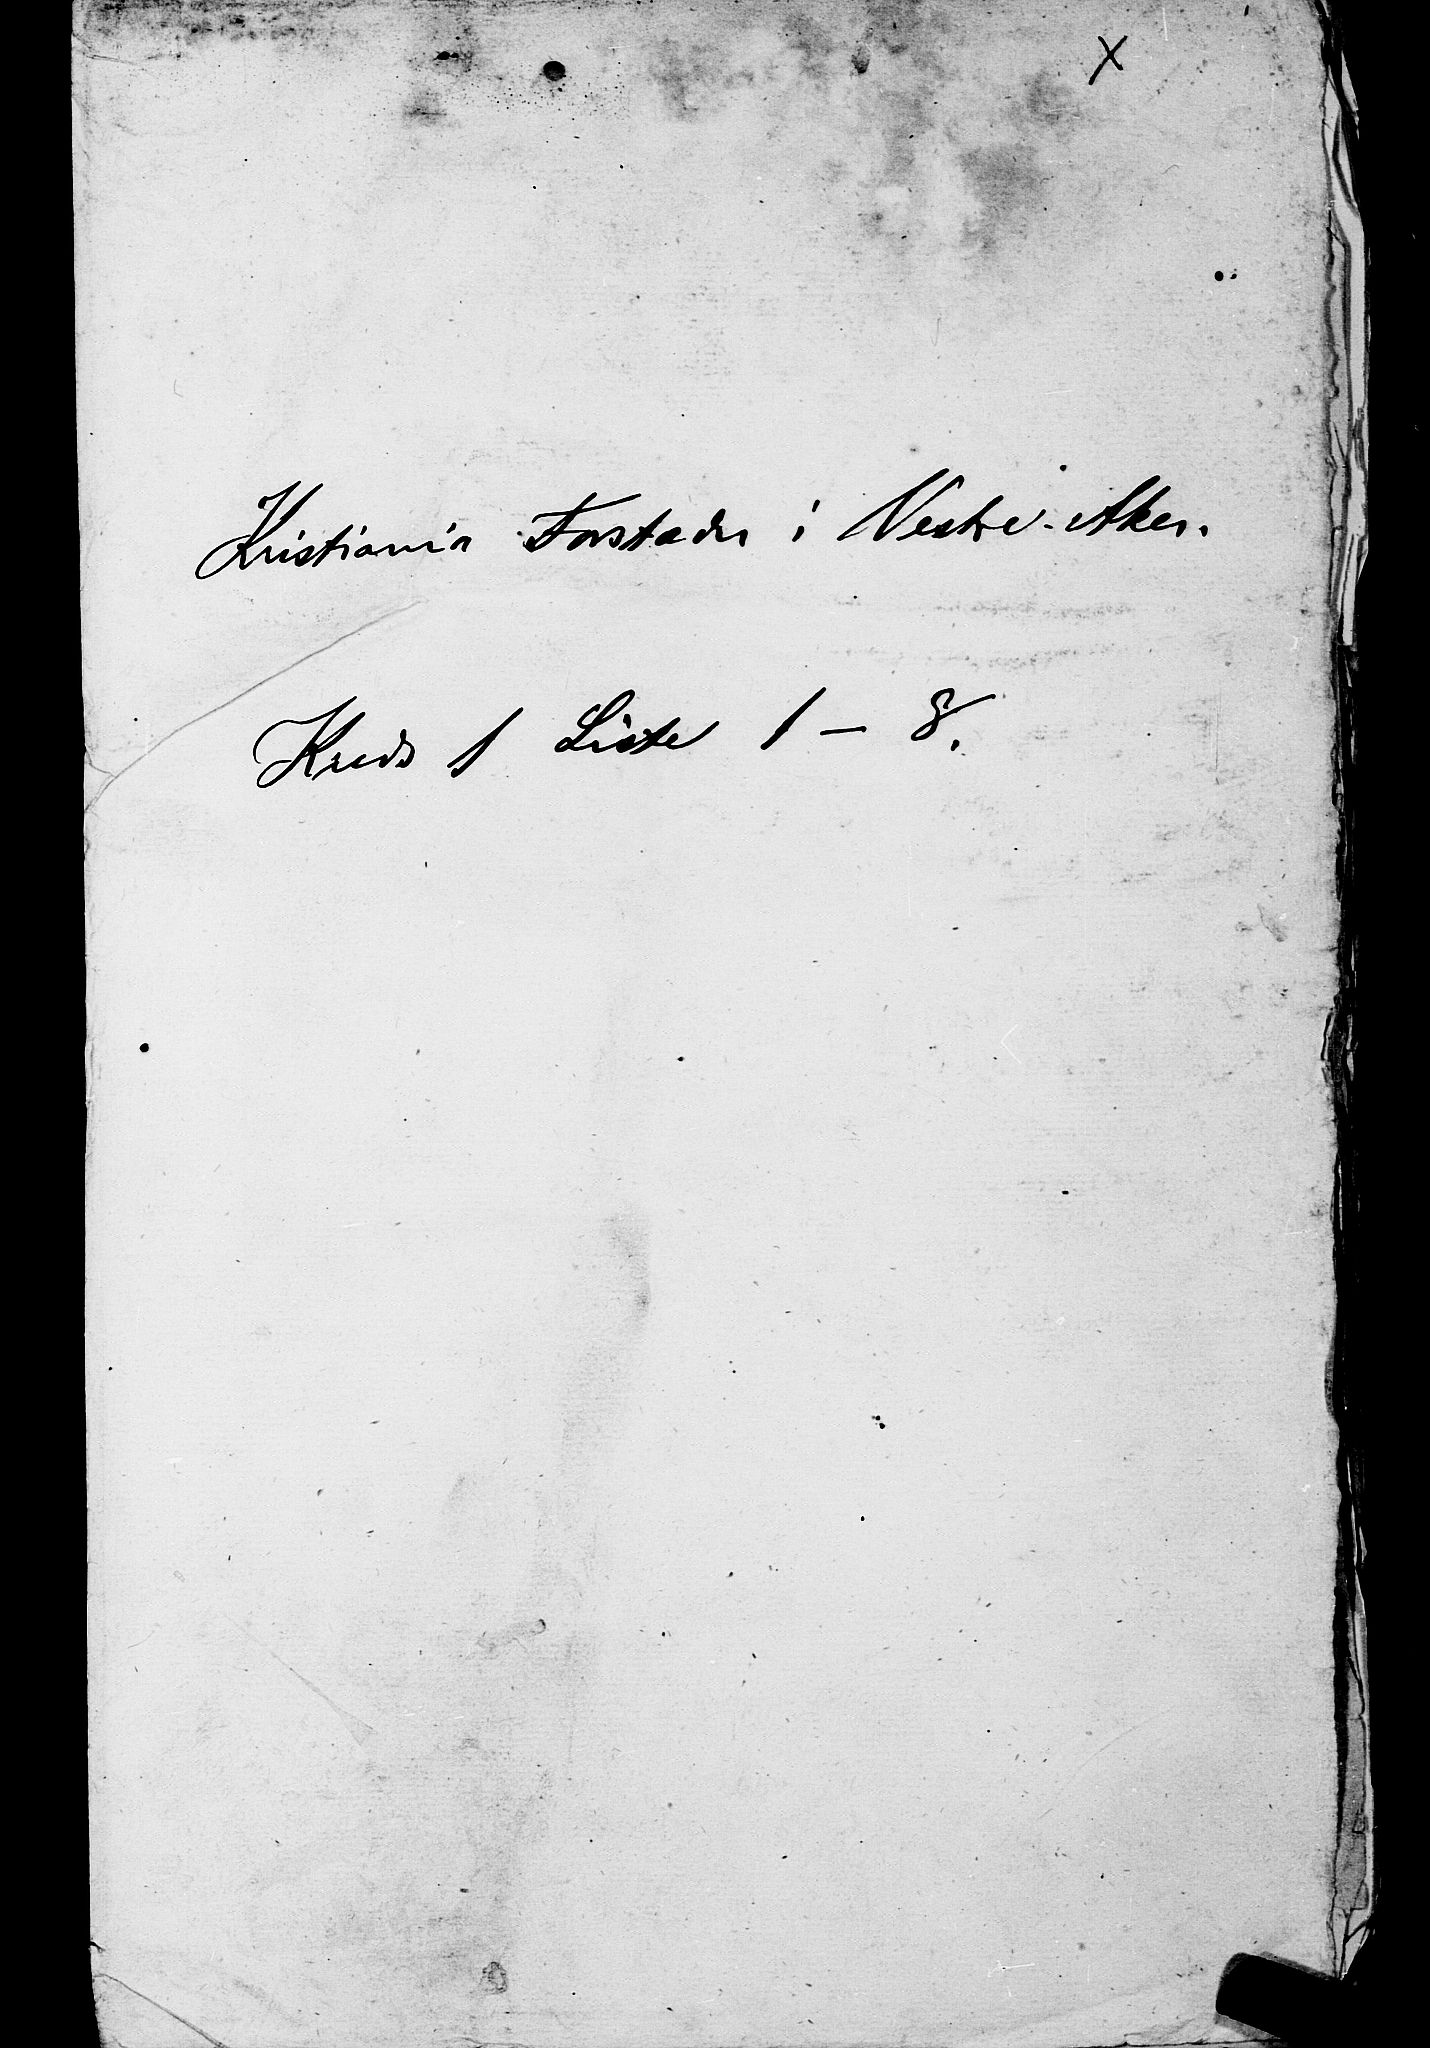 X
Kristiania Forstæder i Vestre-Aker.
Kreds 1 Liste 1 – 8.